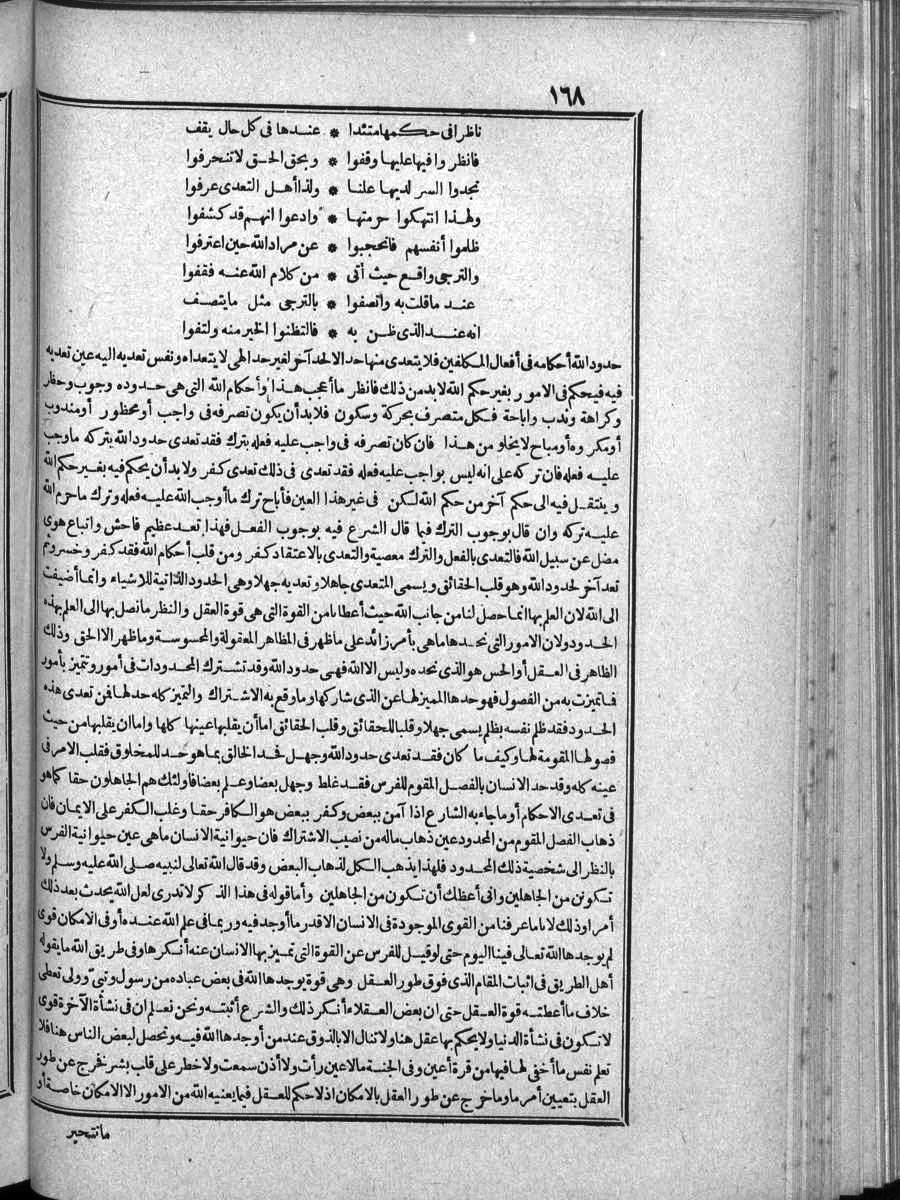 ١٦٨
ناظرا في حكمها متئدا * عندها في كل حال يقف
فانظروا فيها عليها وقفوا * وبحق الحق لا تنحرفوا
تجدوا السر لديها علنا * ولذا أهل التعدى عرفوا
ولهذا انتهكوا حرمتها * وادعوا انهم قد كشفوا
ظلموا أنفسهم فانحجبوا * عن مراد الله حين اعترفوا
والترجى واقع حيث أتى * من كلام الله عنه فقفوا
عند ما قلت به واتصفوا * بالترجى مثل ما يتصف
انه عند الذى ظن به * فالتظنوا الخير منه ولتفوا
حدود الله أحكامه في أفعال المكلفين فلا يتعدى منها حد الالحد آخر لغير حد الهى لا يتعداه ونفس تعديه اليه عين تعديه
فيه فيحكم في الامور بغير حكم الله لابد من ذلك فانظر ما أعجب هذا وأحكام الله التي هي حدوده وجوب وحظر
وكراهة وندب واباحة فكل متصرف بحركة وسكون فلابد أن يكون تصرفه في واجب أو محظور أو مندوب
أو مكروه أو مباح لا يخلو من هذا فان كان تصرفه في واجب عليه فعله بترك فقد تعدى حدود الله بتركه ما وجب
عليه فعله فان تركه على انه ليس بواجب عليه فعله فقد تعدى في ذلك تعدى كفر ولابد أن يحكم فيه بغير حكم الله
وينتقل فيه الى حكم آخر من حكم الله لكن في غير هذا العين فأباح ترك ما أوجب الله عليه فعله وترك ما حرم الله
عليه تركه وان قال بوجوب الترك فيما قال الشرع فيه بوجوب الفعل فهذا تعد عظيم فاحش واتباع هوى
مضل عن سبيل الله فالتعدى بالفعل والترك معصية والتعدى بالاعتقاد كفر ومن قلب أحكام الله فقد كفر وخسر وثم
تعد آخر لحدود الله وهو قلب الحقائق ويسمى المتعدى جاهلا وتعديه جهلا وهي الحدود الذاتية للاشياء وانما أضيفت
الى الله لان العلم بها انما حصل لنا من جانب الله حيث أعطانا من القوة التي هي قوة العقل والنظر ما نصل بها الى العلم بهذه
الحدود ولان الامور التي نحدها ما هي بأمر زائد على ما ظهر في المظاهر المعقولة والمحسوسة وما ظهر الا الحق وذلك
الظاهر في العقل أو الحس هو الذى نحده وليس الا الله فهى حدود الله وقد تشترك المحدودات في أمور وتتميز بأمور
فما تميزت به من الفصول فهو حدها المميز لها عن الذى شاركها وما وقع به الاشتراك والتميز كله حد لها فمن تعدى هذه
الحدود فقد ظلم نفسه بظلم يسمى جهلا وقلبا للحقائق وقلب الحقائق اما أن يقلبها عينها كلها واما ان يقلبها من حيث
فصولها المقومة لها وكيف ما كان فقد تعدى حدود الله وجهل فحد الخالق بما هو حد للمخلوق فقلب الامر في
عينه كله وقد حد الانسان بالفصل المقوم للفرس فقد غلط وجهل بعضا وعلم بعضا فاولئك هم الجاهلون حقا كما هو
في تعدى الاحكام أو ما جاء به الشارع اذا آمن ببعض وكفر ببعض هو الكافر حقا وغلب الكفر على الايمان فان
ذهاب الفصل المقوم من المحدود عين ذهاب ماله من نصيب الاشتراك فان حيوانية الانسان ما هي عين حيوانية الفرس
بالنظر الى شخصية ذلك المحدود فلهذا يذهب الكل لذهاب البعض وقد قال الله تعالى لنبيه صلى الله عليه وسلم ولا
تكونن من الجاهلين واني أعظك أن تكون من الجاهلين وأما قوله في هذا الذكر لا تدرى لعل الله يحدث بعد ذلك
أمرا وذلك لانا ما عرفنا من القوى الموجودة في الانسان الا قدر ما أوجد فيه وربما في علم الله عنده أو في الامكان قوى
لم يوجدها الله تعالى فينا اليوم حتى لو قيل للفرس عن القوة التي تميز بها الانسان عنه أنكرها وفي طريق الله ما يقوله
أهل الطريق في اثبات المقام الذى فوق طور العقل وهى قوة يوجدها الله في بعض عباده من رسول ونبي وولى تعطى
خلاف ما أعطته قوة العقل حتى ان بعض العقلاء أنكر ذلك والشرع أثبته ونحن نعلم ان في نشأة الآخرة قوى
لا تكون في نشأة الدنيا ولا يحكم بها عقل هنا ولا تنال الا بالذوق عند من أوجدها الله فيه وتحصل لبعض الناس هنا فلا
تعلم نفس ما أخفى لها فيها من قرة أعين وفي الجنة ما لا عين رأت ولا أذن سمعت ولا خطر على قلب بشر فخرج عن طور
العقل بتعيين أمر ما وما خرج عن طور العقل بالامكان اذ لا حكم للعقل فيما يعنيه الله من الامور الا الامكان خاصة أو
ما تتحير